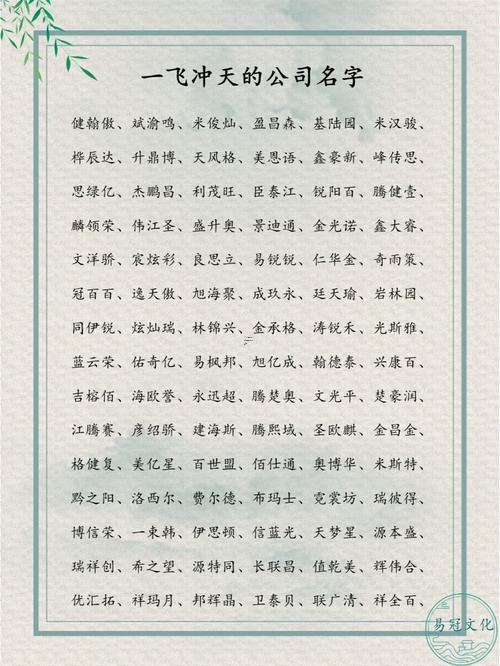 一飞冲天的公司名字
健翰傲、斌渝鸣、米俊灿、盈昌森、基陆园、米汉骏、
桦辰达、升鼎博、天风格、美恩语、鑫豪新、峰传思、
思绿亿、杰鹏昌、利茂旺、臣泰江、锐阳百、腾健壹、
麟领荣、伟江圣、盛升奥、景迪通、金光诺、鑫大睿、
文洋骄、宸炫彩、良思立、易锐锐、仁华金、奇雨策、
冠百百、逸天傲、旭海聚、成玖永、廷天瑜、岩林园、
同伊锐、炫灿瑞、林锦兴、金承格、涛锐禾、光斯雅、
蓝云荣、佑奇亿、易枫邦、旭亿成、翰德泰、兴康百、
吉榕佰、海欧誉、永迅超、腾楚奥、文光平、楚豪润、
江腾赛、彦绍骄、建海斯、腾熙域、圣欧麒、金昌金、
格健复、美亿星、百世盟、佰仕通、奥博华、米斯特、
黔之阳、洛西尔、费尔德、布玛士、霓裳坊、瑞彼得、
博信荣、一束韩、伊思顿、信蓝光、天梦星、源本盛、
瑞祥创、希之望、源特同、长联昌、值乾美、辉伟合、
优汇拓、祥玛月、邦辉晶、卫泰贝、联广清、祥全百、
易冠文化